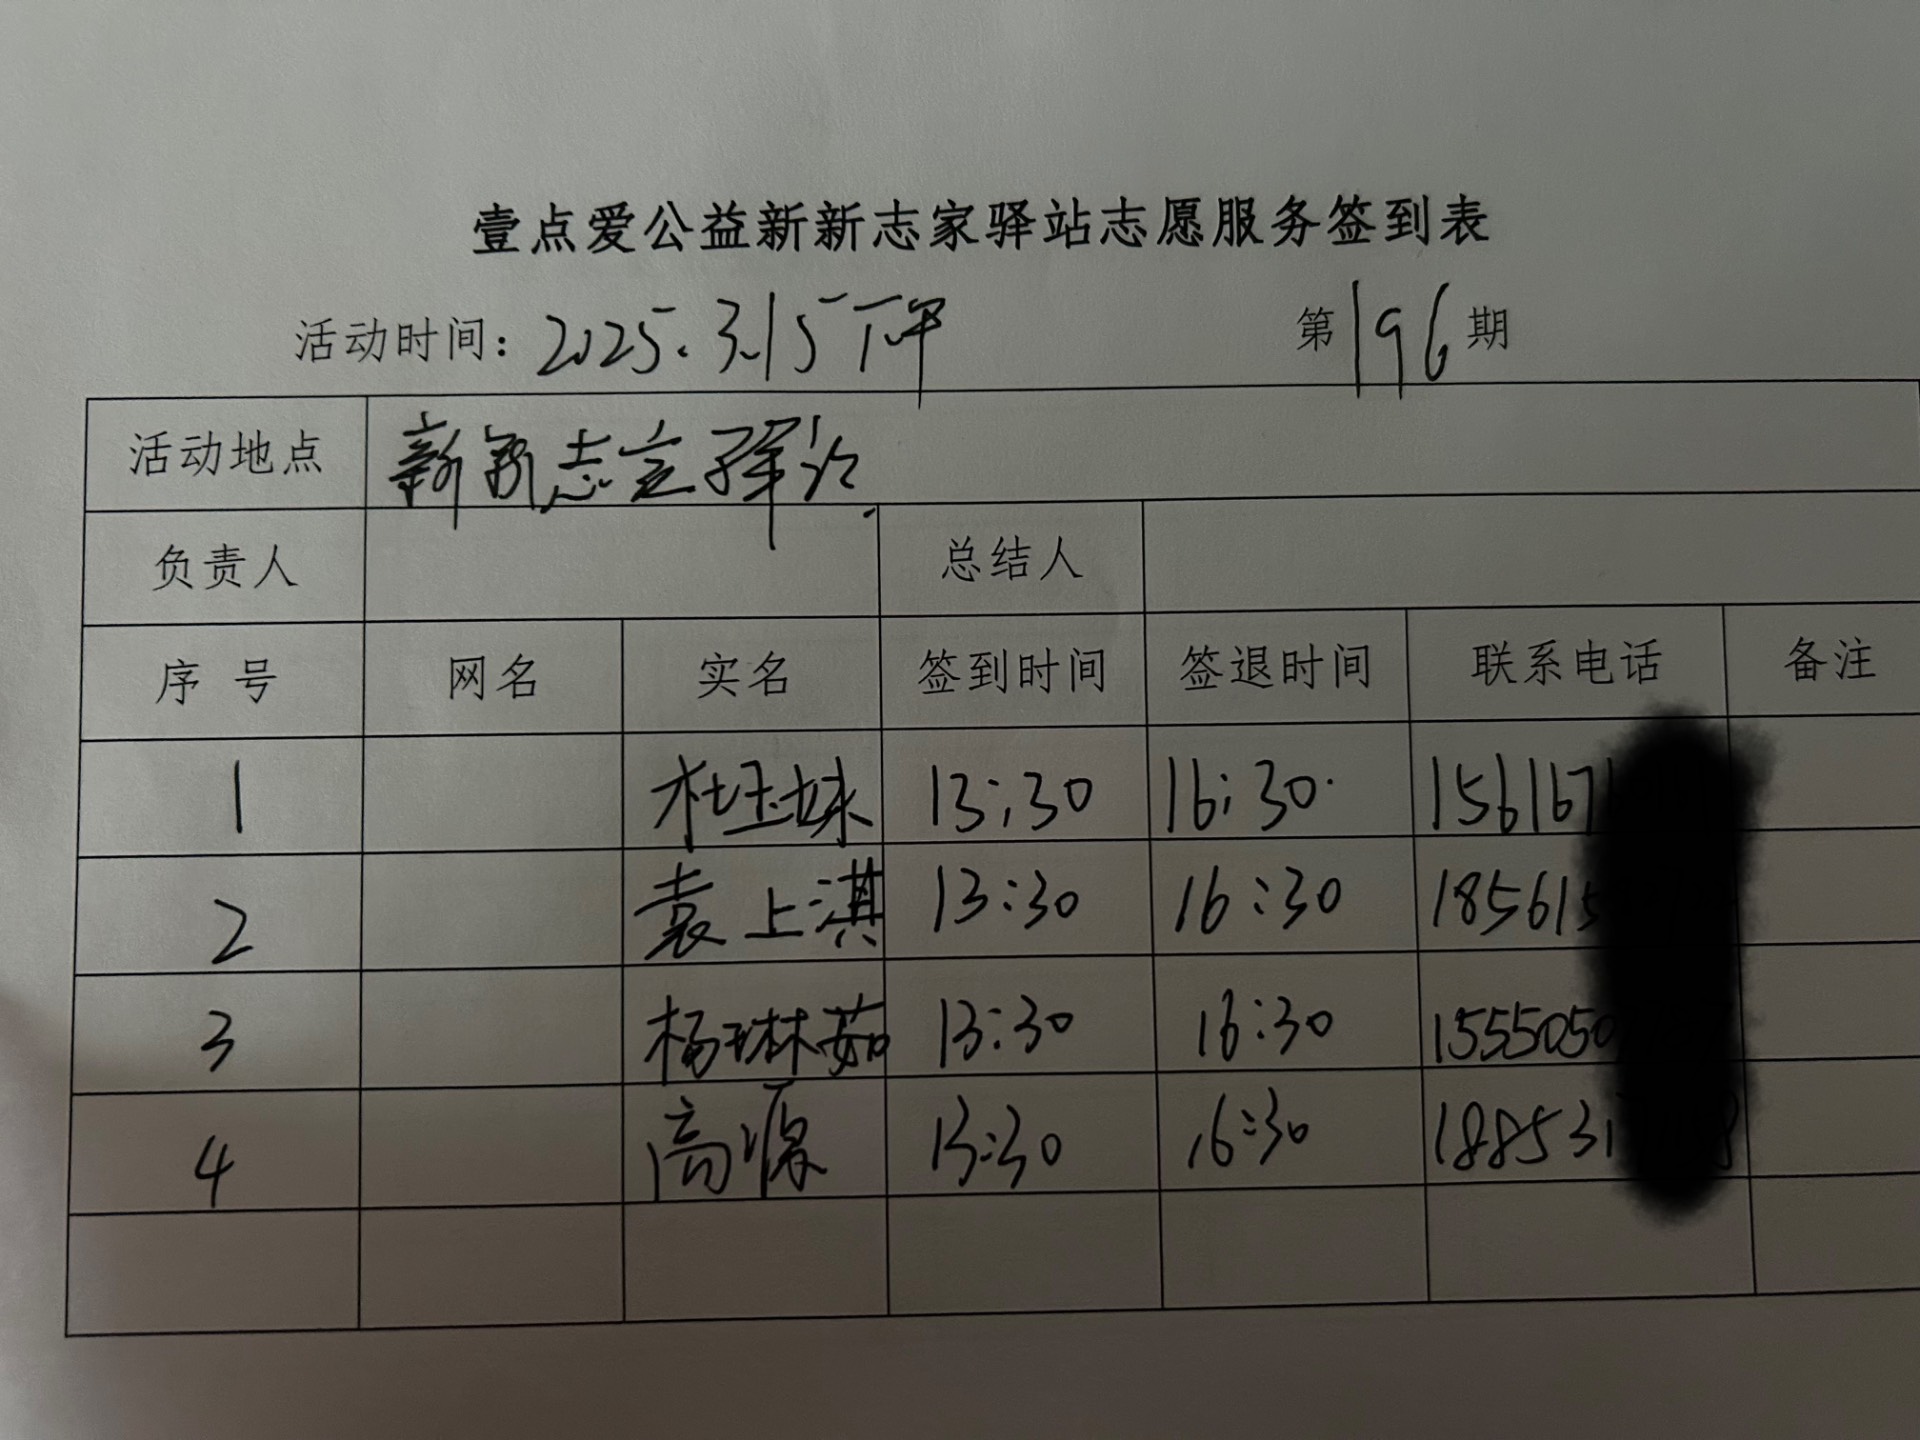 壹点爱公益新新志家驿站志愿服务签到表
活动时间：2025.3.15下午 第196期
活动地点 新新志家驿站
负责人 总结人
序号 网名 实名 签到时间 签退时间 联系电话 备注
1 杜玉妹 13:30 16:30 156167
2 袁上淇 13:30 16:30 185615
3 杨琳茹 13:30 16:30 1555050
4 高源 13:30 16:30 188531